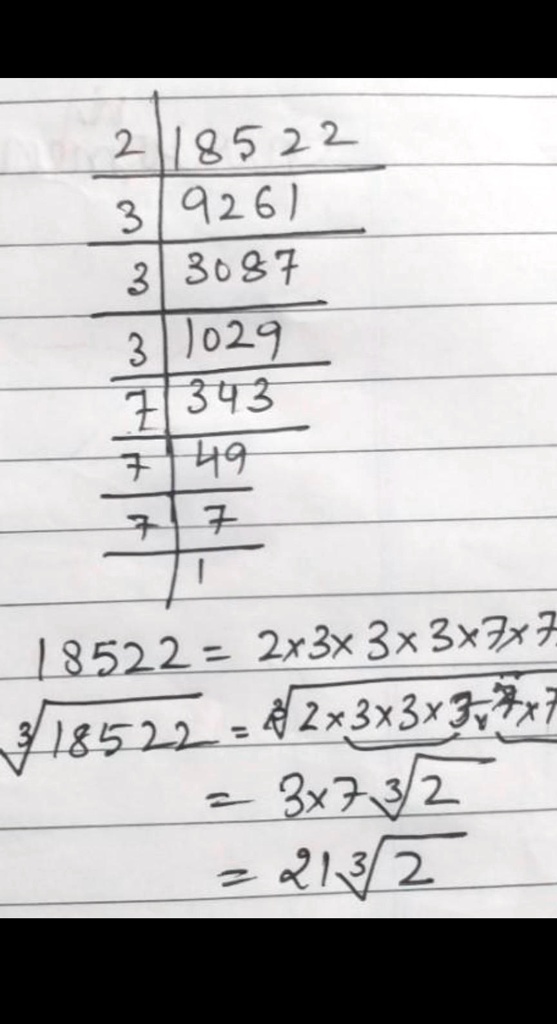 2 | 18522
3 | 9261
3 | 3087
3 | 1029
7 | 343
7 | 49
7 | 7
| 1
18522 = 2×3×3×3×7×7
∛18522 = ∛2×3×3×3×7×7
= 3×7∛2
= 21∛2